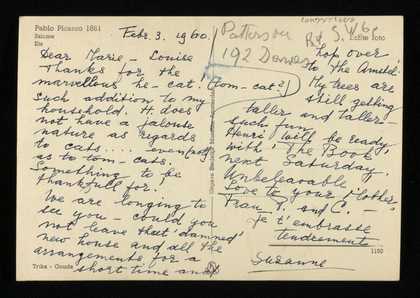 Pablo Picasso 1881
Febr. 3, 1960.
Dear Marie - Louise
Thanks for the
marvellous he - cat. (Tom - cat?)
Such addition to my
household. He does
not have a jalouse
nature as regards
to cats.... even (not)
as to tom - cats.
Something to be
thankfull for!
We are longing to
see you - could you
not leave that 'damned'
new house and all the
arrangements for a
short time and
Trike - Gouda
Patterson
192
hop over
to the
My trees are
still getting
taller and taller -
such fun.
Henri will be ready,
with 'The Book'
next Saturday.
Unbelievable.
Love to your Mother,
Frau T. and C. -
je t'embrasse
tendrement
Suzanne
1150